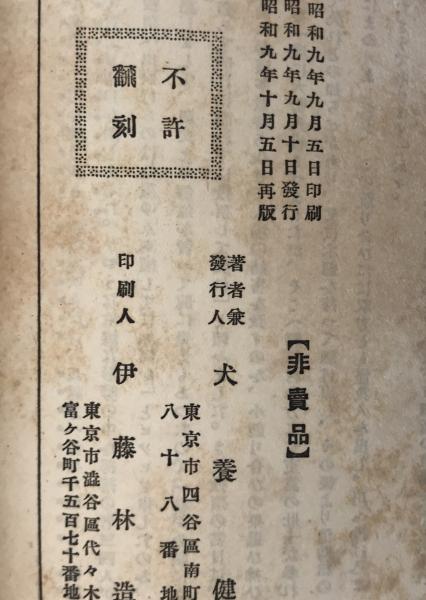 昭和九年九月五日印刷
昭和九年九月十日發行
昭和九年十月五日再版
不許
飜刻
【非賣品】
著者兼
發行人
犬養健
東京市四谷區南町
八十八番地
印刷人
伊藤林造
東京市澁谷區代々木
富ケ谷町千五百七十番地